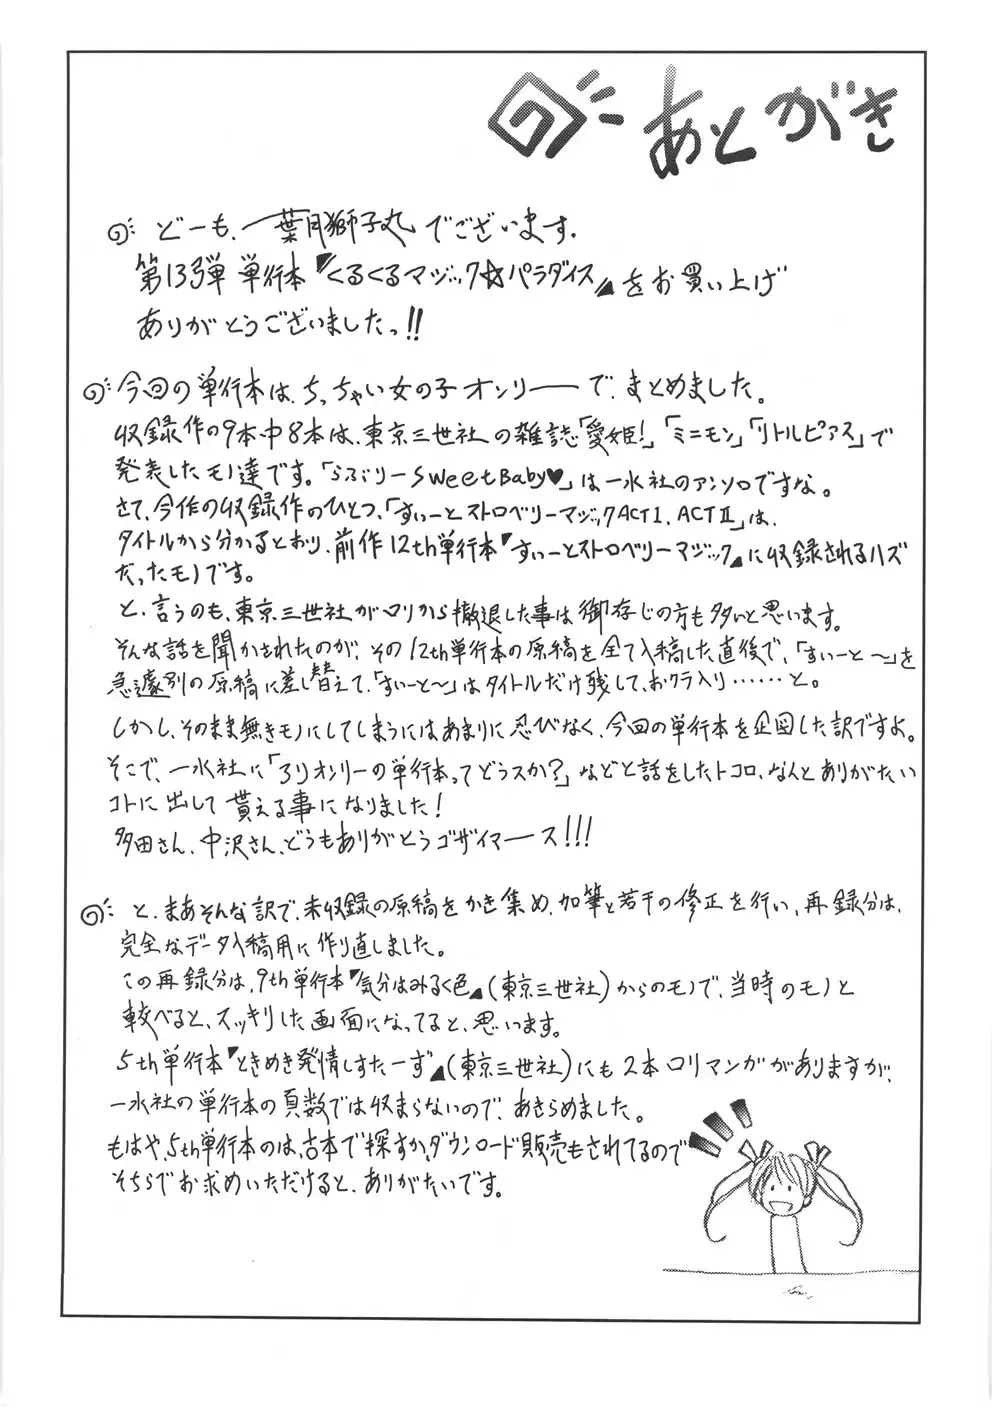 あとがき
どーも、葉月獅子丸でございます。
第13弾 単行本『くるくるマジック☆パラダイス』をお買い上げ
ありがとうございましたっ!!
今回の単行本は、ちっちゃい女の子オンリーーで、まとめました。
収録作の9本中8本は、東京三世社の雑誌「愛姫!」「ミニモン」「リトルピアス」で
発表したモノ達です。「らぶりーSweetBaby♥」は一水社のアンソロですな。
さて、今作の収録作のひとつ、「すぃーとストロベリーマジックACT I. ACT II」は、
タイトルから分かるとおり、前作12th単行本『すぃーとストロベリーマジック』に収録されるハズ
だったモノです。
と、言うのも、東京三世社がロリから撤退した事は御存じの方も多いと思います。
そんな話を聞かされたのが、その12th単行本の原稿を全て入稿した直後で、「すぃーと〜」を
急遽別の原稿に差し替えて、「すぃーと〜」はタイトルだけ残して、おクラ入り……と。
しかし、そのまま無きモノにしてしまうにはあまりに忍びなく、今回の単行本を企図した訳ですよ。
そこで、一水社に「ろりオンリーの単行本ってどうスか?」などと話をしたトコロ、なんとありがたい
コトに出して貰える事になりました!
多田さん、中沢さん、どうもありがとうゴザイマース!!!
と、まあそんな訳で、未収録の原稿をかき集め、加筆と若干の修正を行い、再録分は、
完全なデータ入稿用に作り直しました。
この再録分は、9th単行本『気分はみるく色』(東京三世社)からのモノで、当時のモノと
較べると、スッキリした画面になってると、思います。
5th単行本『ときめき発情しすたーず』(東京三世社)にも2本ロリマンガがありますが、
一水社の単行本の頁数では収まらないので、あきらめました。
もはや、5th単行本のは、古本で探すか、ダウンロード販売もされてるので
そちらでお求めいただけると、ありがたいです。